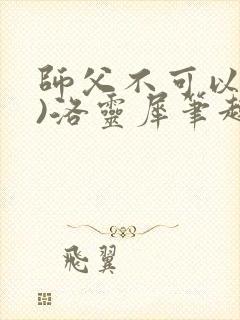 師父不可以
)洛靈犀筆趣
飛翼